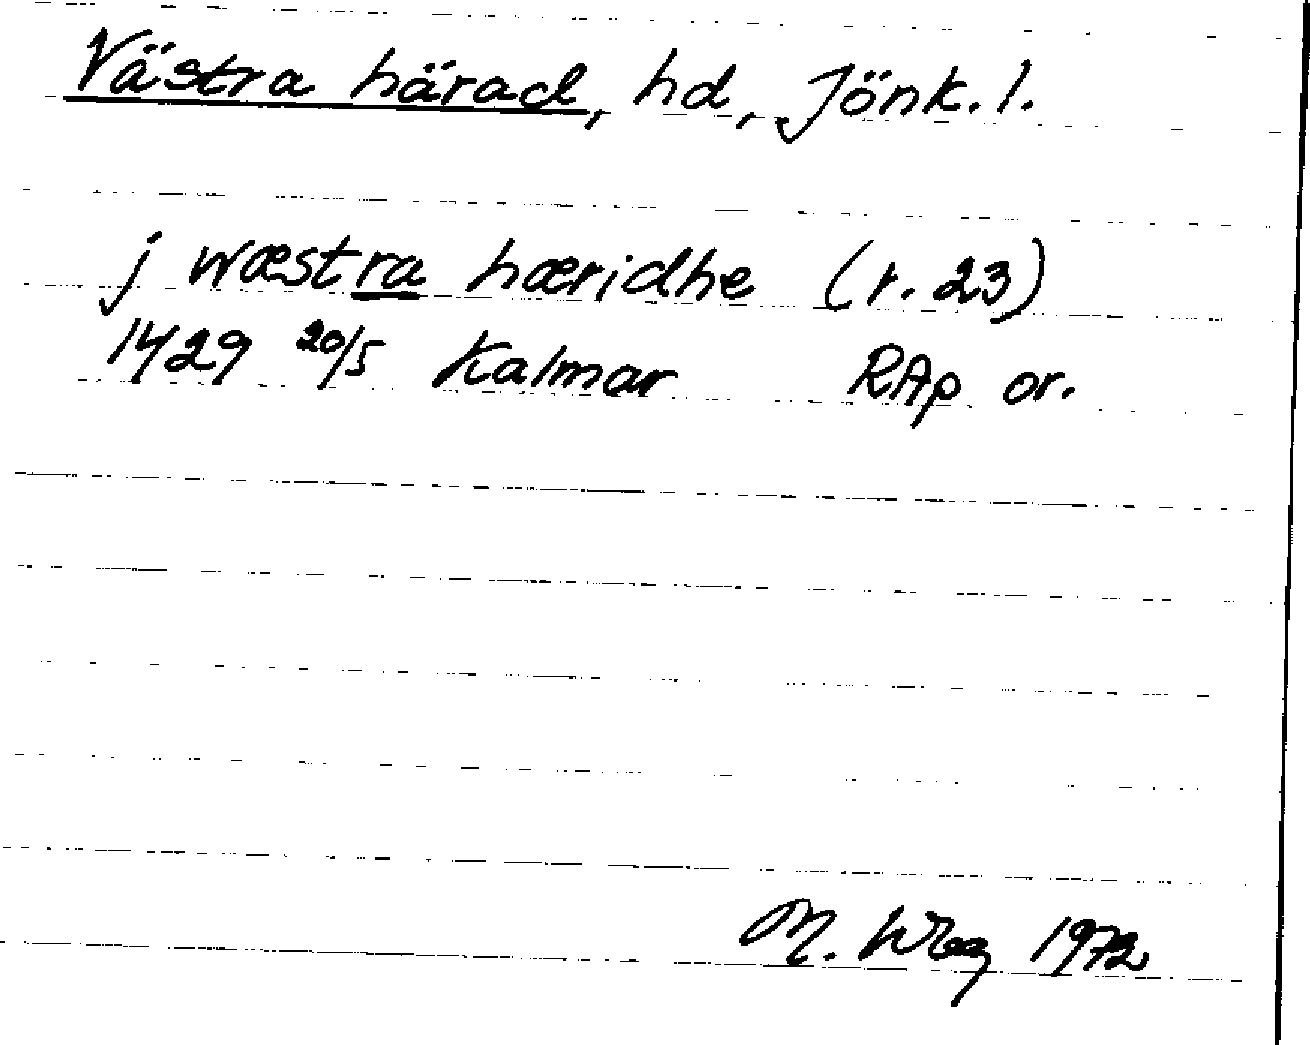 Västra härad, hd, Jönk. l.
j wæstra hæridhe (r. 23)
1429 20/5 Kalmar RAp or.
M. Wbg 1972